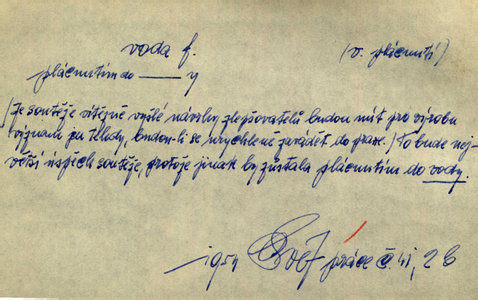 voda f. (v. plácnutí)
plácnutím do —— y
/Ze soutěže vítězně vyšlé návrhy zlepšovatelů budou mít pro výrobu
význam jen tehdy, budou-li se urychleně zavádět do praxe./ To bude nej-
větší úspěch soutěže, protože jinak by zůstala plácnutím do vody.
1954 práce č. 41, 2 b